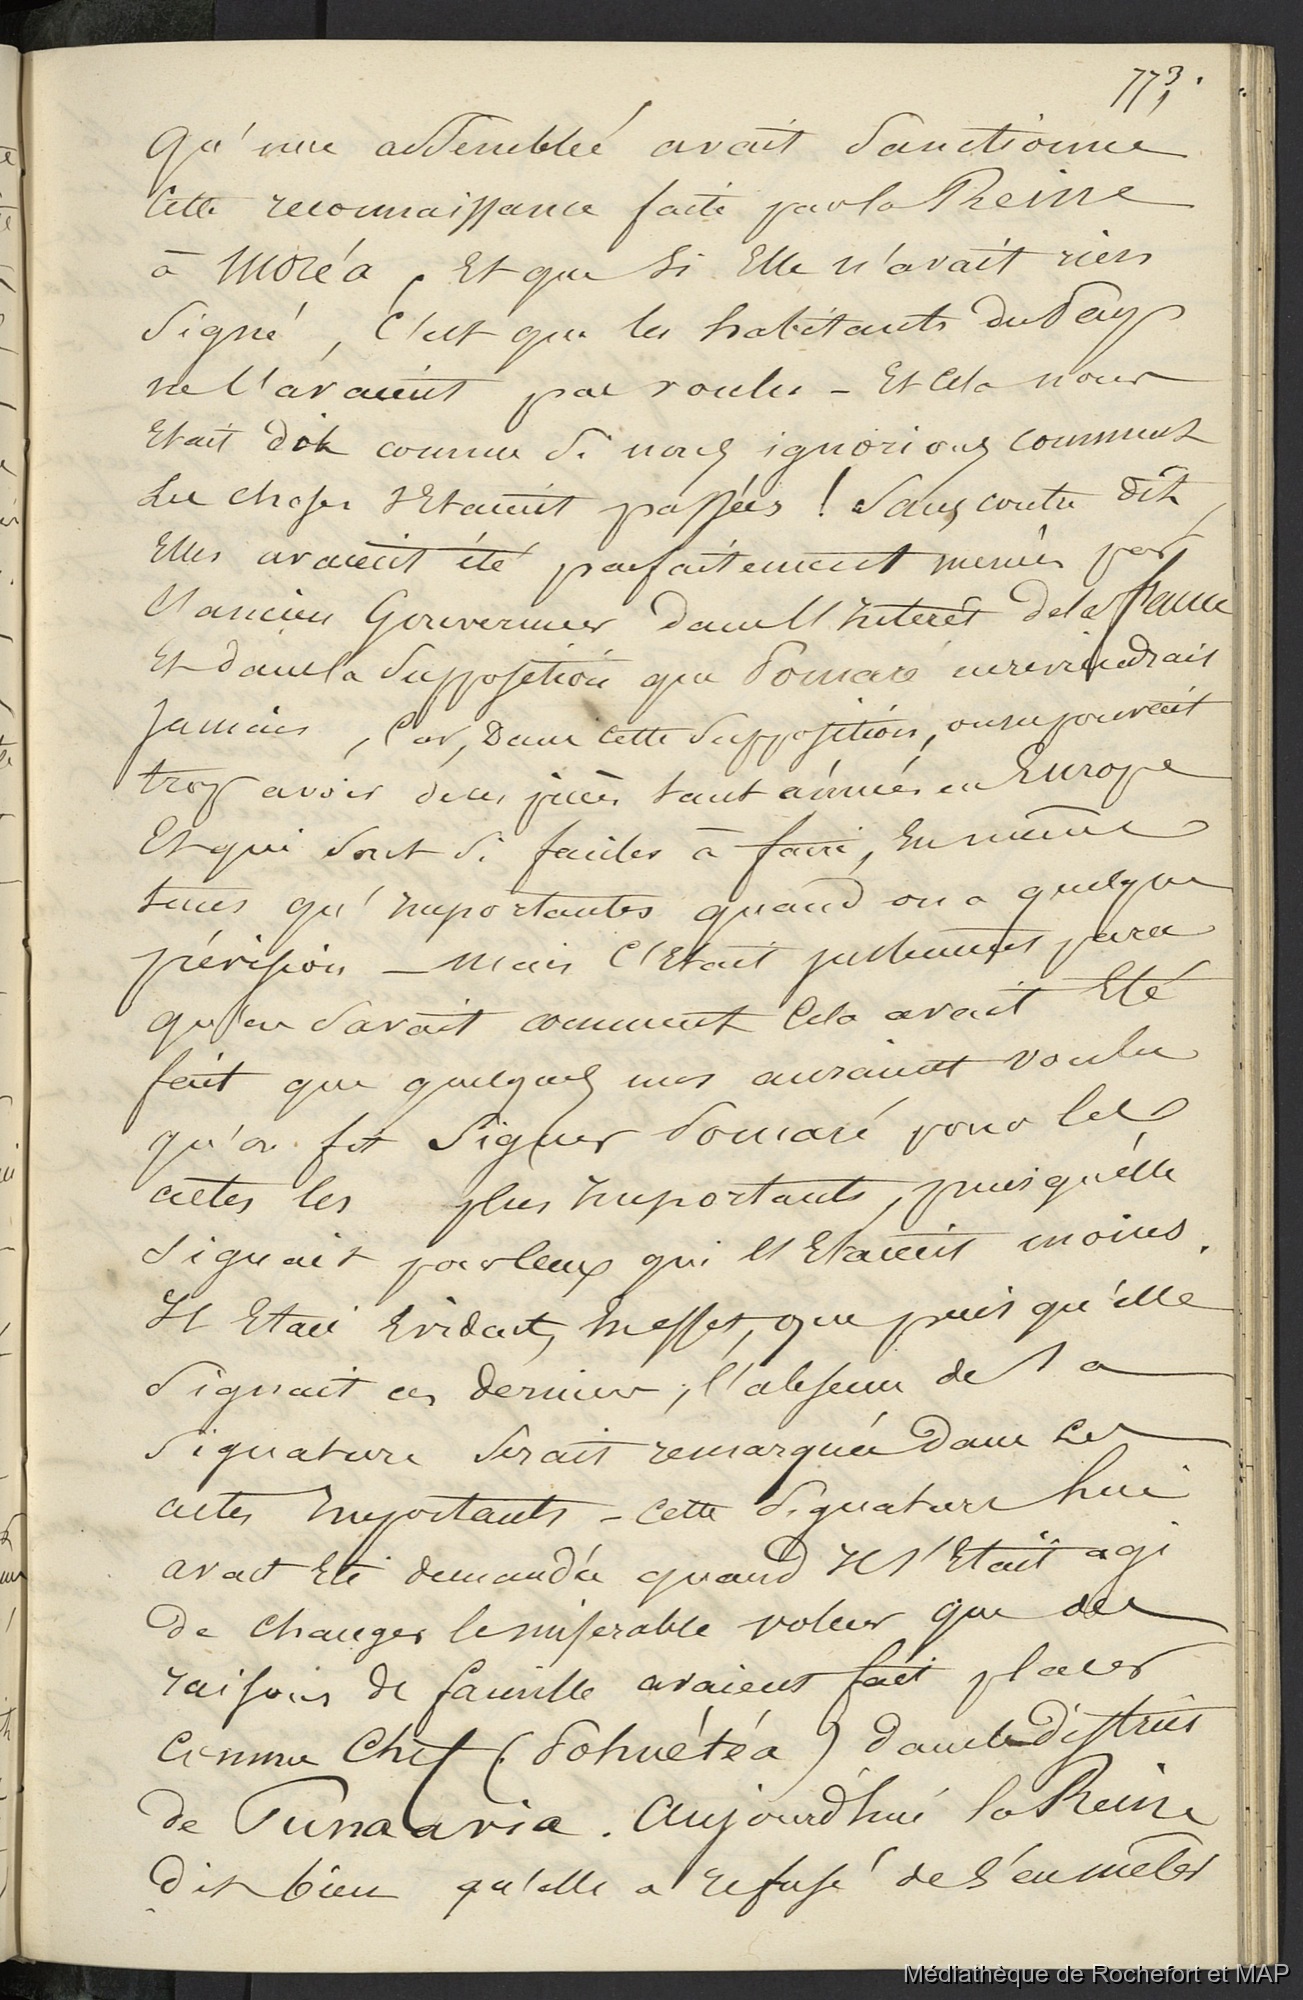 773.
Qu'une assemblée avait Sanctionné
Cette reconnaissance faite par la Reine
à Moréa, Et que Si Elle n'avait rien
Signé, C'est que les habitants du Pays
ne l'avaient pas voulu - Et Cela nous
Etait dit comme Si nous ignorions comment
Les choses S'Etaient passées ! Sans contre dit,
Elles avaient été parfaitement menées par
l'ancien Gouverneur dans l'Intérêt de la France
Et dans la Supposition que Pomaré ne reviendrait
Jamais, Car, Dans Cette Supposition, on ne pouvait
trop avoir de ces pièces tant aimées en Europe
Et qui Sont Si faciles à faire, En même
tems qu'Importantes quand on a quelque
prévision - Mais C'Etait justement parce
qu'on Savait comment Cela avait Eté
fait que quelques uns auraient voulu
qu'on fit Signer Pomaré pour les
actes les plus Importants, puisqu'elle
Signait pour ceux qui l'Etaient moins.
Il Etait Evident, En effet, que puis qu'elle
Signait ces derniers, l'absence de Sa
Signature Serait remarquée dans Les
actes Importants - Cette Signature lui
avait Eté demandée quand Il S'Etait agi
de changer le misérable voleur que des
raisons de famille avaient fait placer
Comme Chef (Pohuétéa) dans le District
de Punaavia. Aujourd'hui la Reine
dit bien qu'elle a refusé de S'en mêler
Médiathèque de Rochefort et MAP